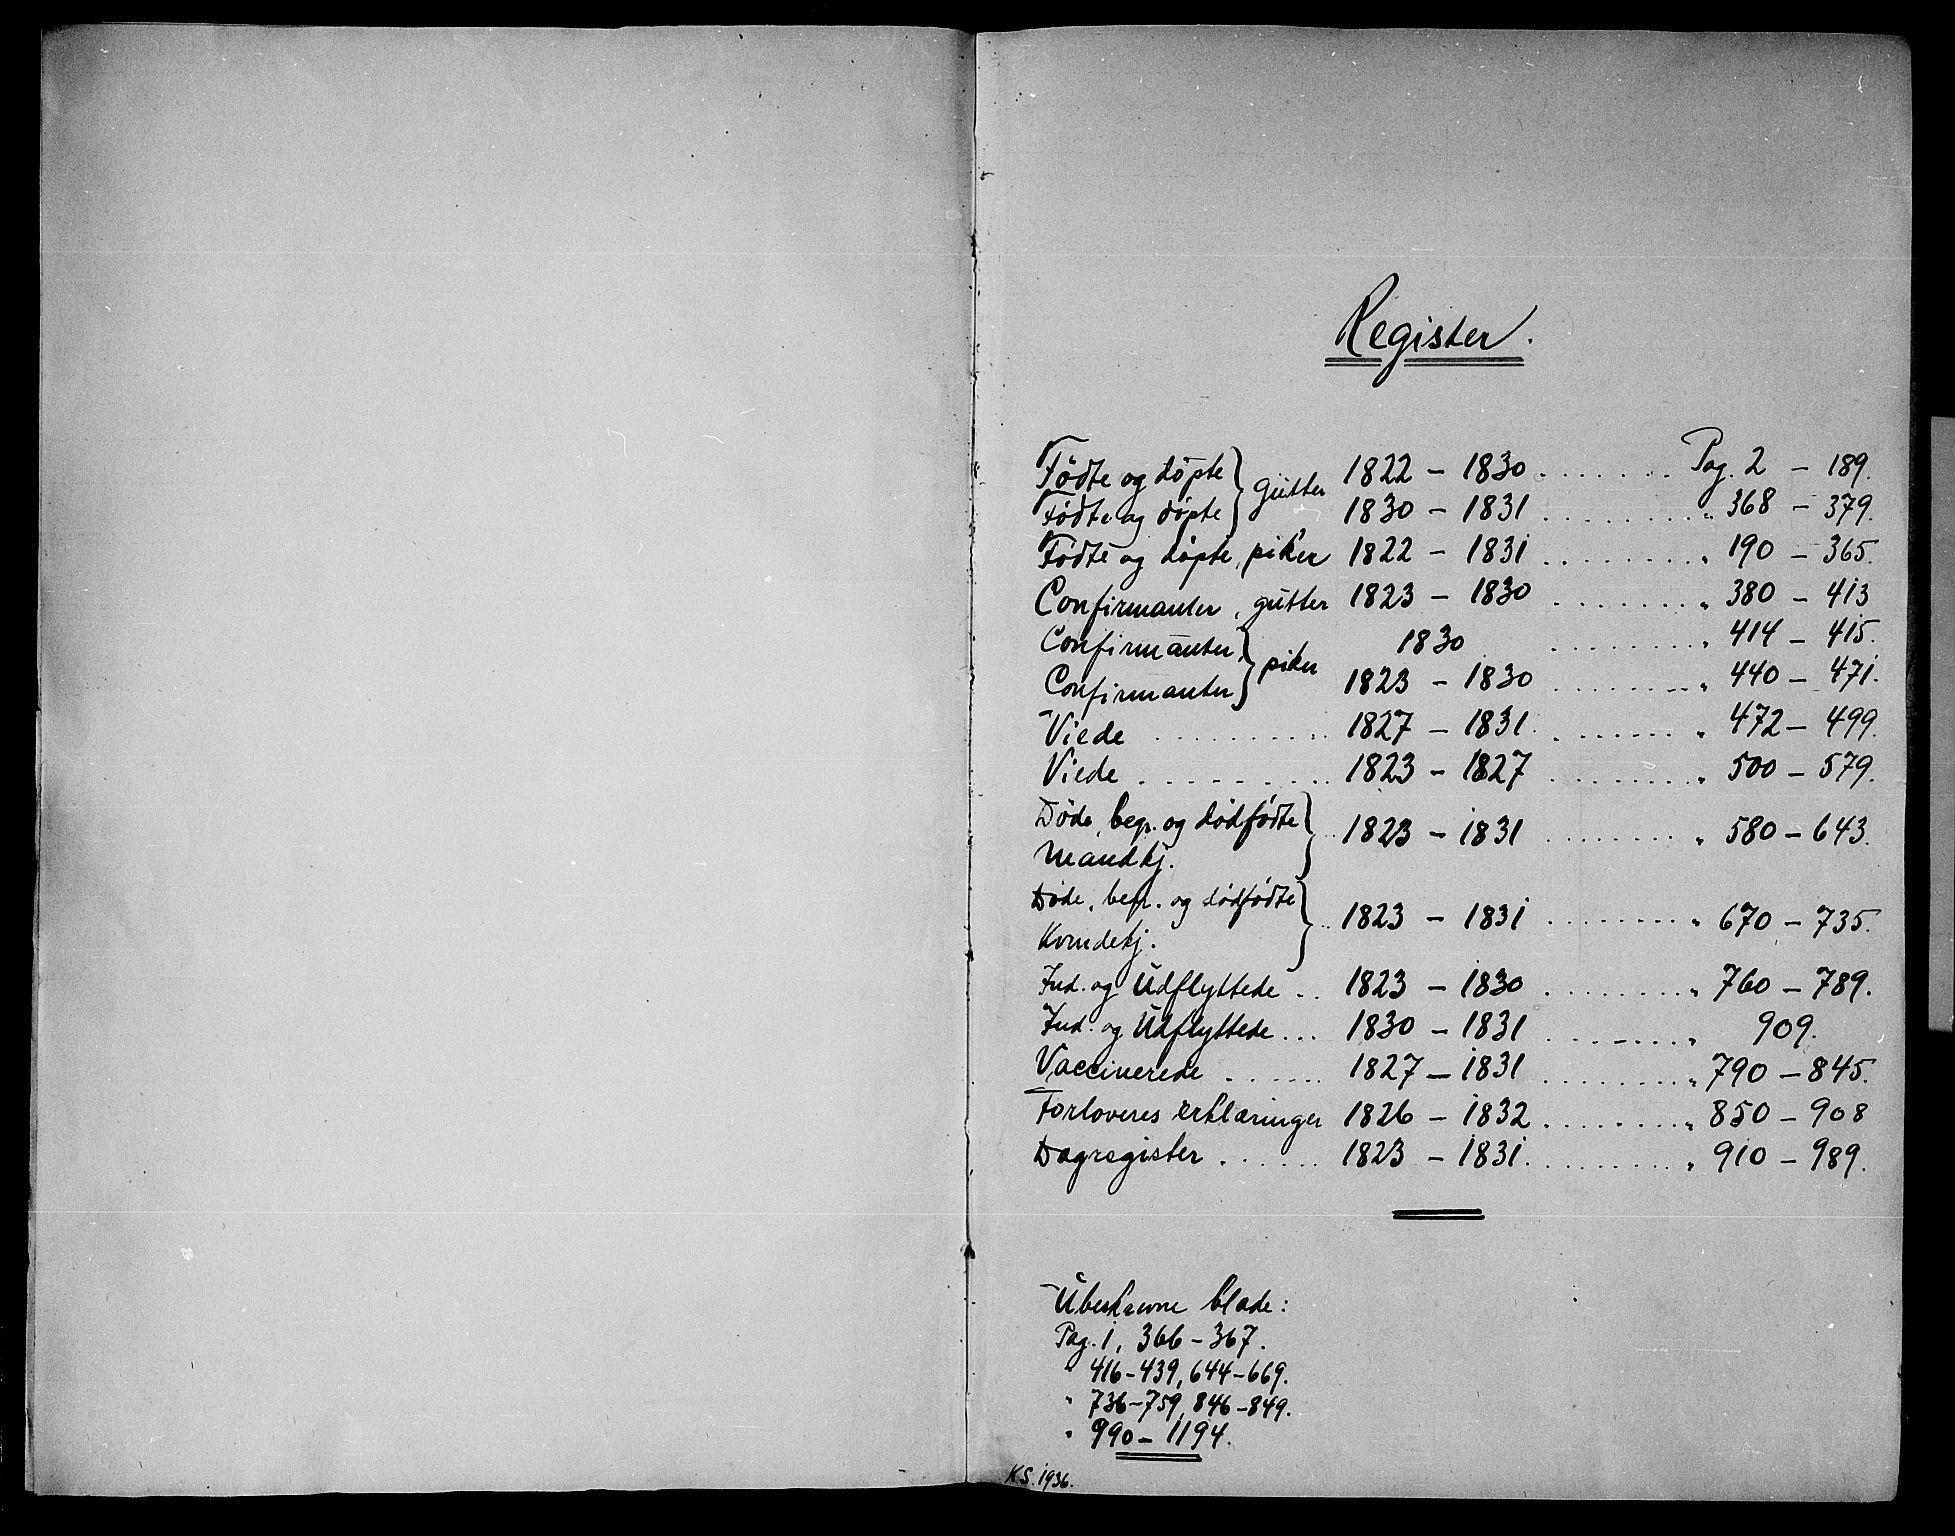 Register.
Fødte og døpte } gutter 1822 – 1830 . . . . . . . Pag. 2 – 189.
Fødte og døpte } 1830 – 1831 . . . . . . . . . " 368 – 379.
Fødte og døpte, piker 1822 – 1831 . . . . . . . . . " 190 – 365.
Confirmanter, gutter 1823 – 1830 . . . . . . . . " 380 – 413
Confirmanter, } piker 1830 . . . . . . . . . " 414 – 415.
Confirmanter } 1823 – 1830 . . . . . . . . . " 440 – 471.
Viede . . . . . . . . . . 1827 – 1831 . . . . . . . . " 472 – 499.
Viede . . . . . . . . . . 1823 – 1827 . . . . . . . . . " 500 – 579.
Døde, begr. og dødfødte } 1823 – 1831 . . . . . . . . . " 580 – 643.
Mandkj.
Døde, begr. og dødfødte } . . 1823 – 1831 . . . . . . . . . " 670 – 735.
Kvindekj.
Ind. og Udflyttede . . 1823 – 1830 . . . . . . . . . " 760 – 789.
Ind. og Udflyttede . . . 1830 – 1831 . . . . . . . . " 909.
Vaccinerede . . . . . . 1827 – 1831 . . . . . . . . . " 790 – 845.
Forloveres erklæringer 1826 – 1832 . . . . . . . . . " 850 – 908
Dagregister . . . . . . 1823 – 1831 . . . . . . . . . " 910 – 989.
Ubeskrevne blade:
Pag. 1, 366 – 367.
" 416 – 439, 644 – 669.
" 736 – 759, 846 – 849.
" 990 – 1194.
KS. 1936.